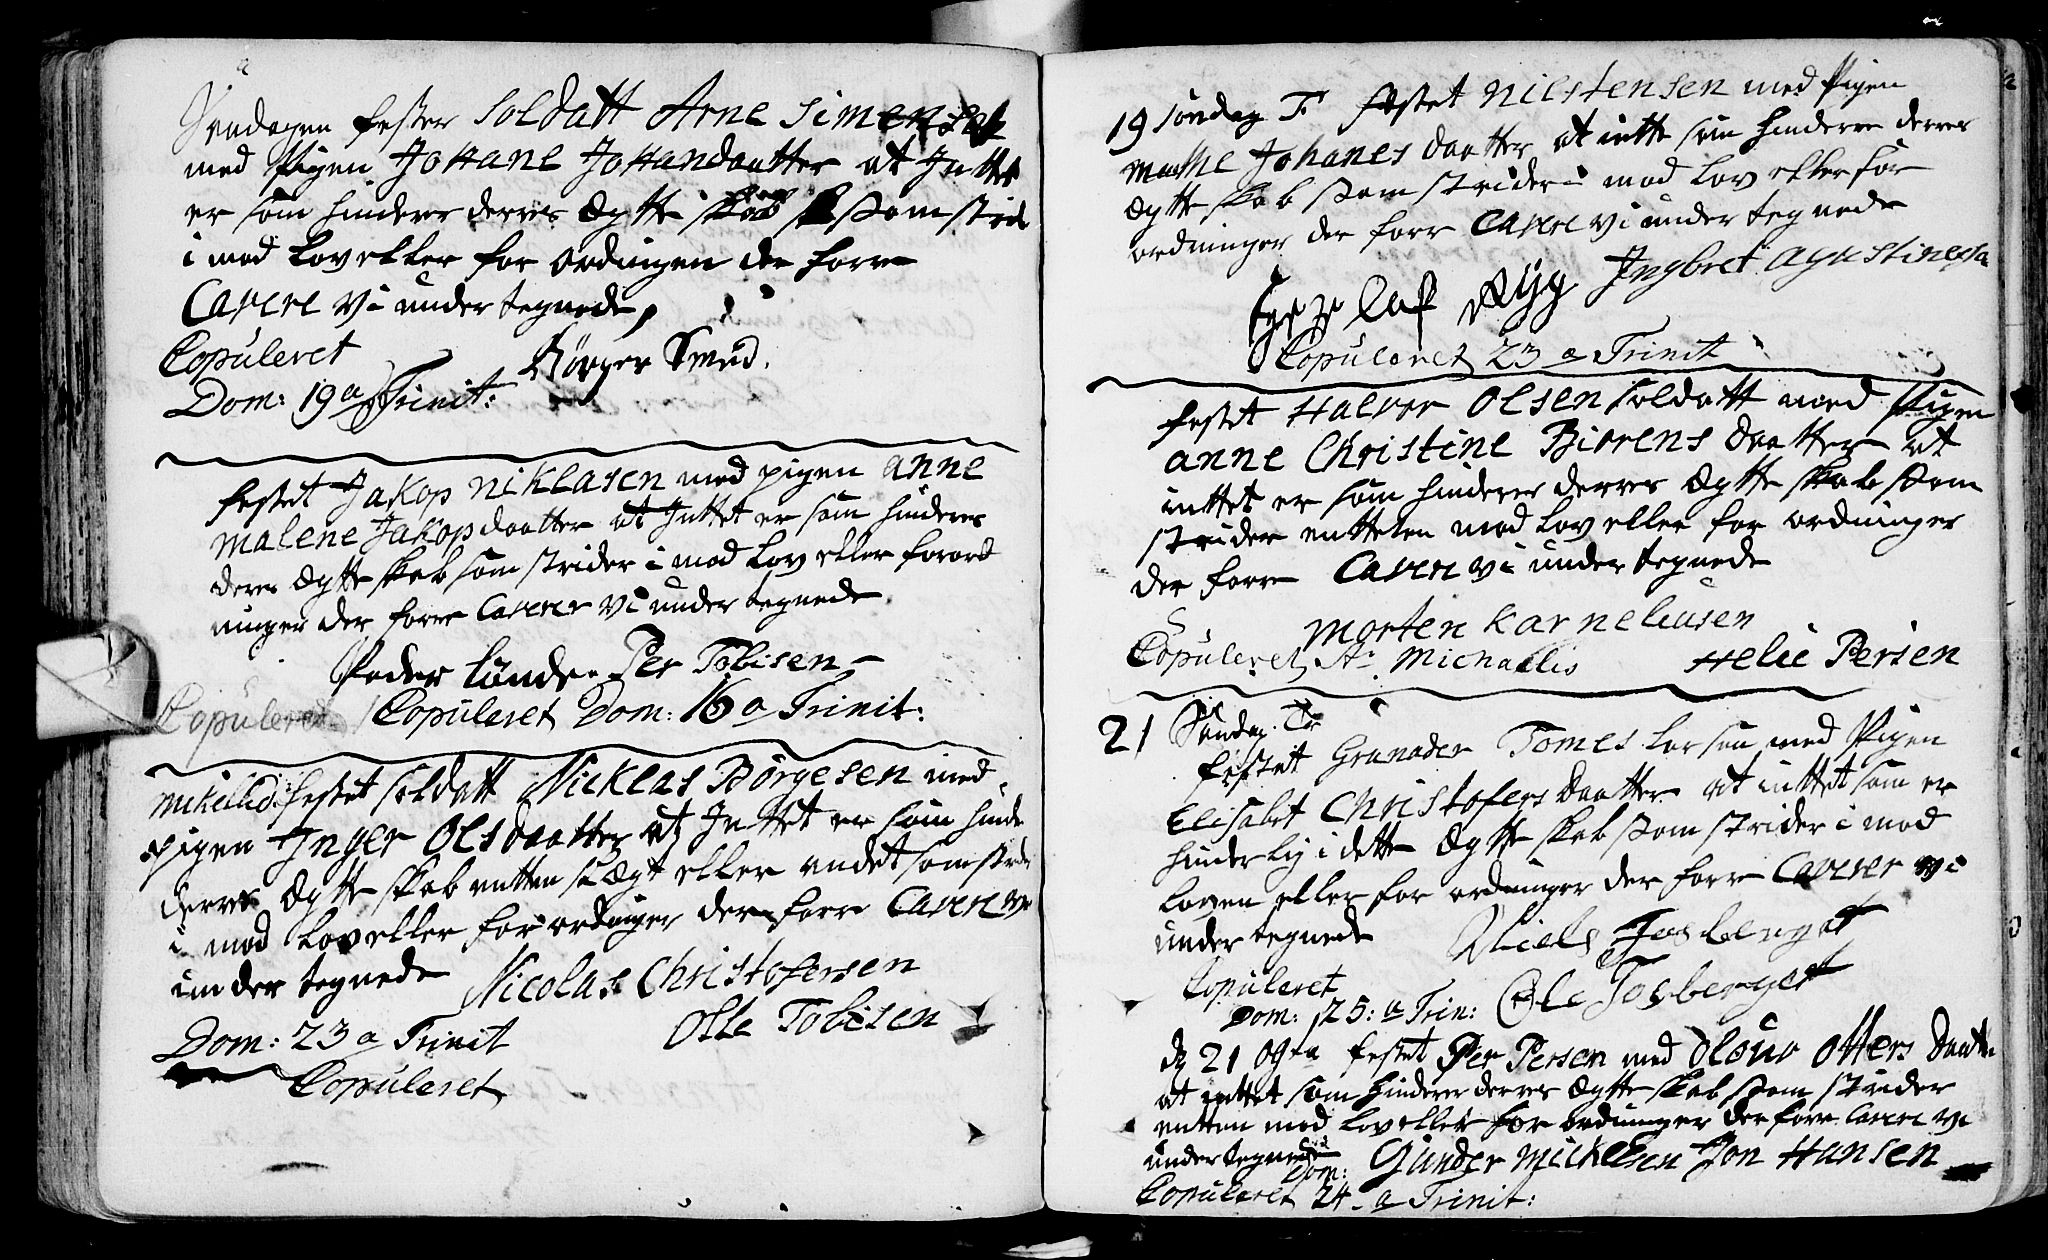 Søndagen fester Soldatt Arne Simensen
med Pigen Johane Johandaatter at Inttet
er som hinderer derres Ægtteskab som strid
i mod lov eller for ordingen der forre
Cavere vi under tegnede,
Copuleret Børger Smed.
Dom: 19 a Trinit:
festet Jakop Niklasen med pigen Anne
Malene Jakopdaatter at Inttet er som hinderer
deres Ægtteskab som strider i mod lov eller forord
ninger der forre Caverer vi under tegnede
Peder Lunde. Per Tobisen
Copuleret Copuleret Dom: 16 a Trinit:
festet soldatt Nicklas Börgesen med
pigen Inger Olsdaatter at Inttet er som hinde
derres Ægtteskab entten slægt eller andet som strider
i mod lov eller for ordinger der forre Cavere vi
under tegnede Nicolas Christofersen
Dom: 23 a Trinit Olle Tobisen
Copuleret
19 Søndag T. festet Nilstensen med Pigen
Mathe Johanes daatter at intte som hinderer derres
Ægtteskab som strider i mod lov eller for
ordninger der forre Cavere vi under tegnede
Ingbret Agustinesen
Olaf Rÿg
Copuleret 23 a Trinit
festet Halvor Olsen soldatt med Pigen
Anne Christine Biørens daatter at
inttet er som hinderer derres Ægtteskab som
strider entten mod lov eller for ordninger
der forre Cavere vi under tegnede
Morten Karneliusen
Copuleret St. Michaelis Helie Persen
21 Søndag Tr
festet Granader Tomes Larsen med Pigen
Elisabt Christofers Daatter at inttet som er
hinderlig i dette Ægtteskab som strider i mod
loven eller for ordninger der forre Caverer vi
under tegnede Niels Fosberget
Copuleret
Dom: 25: a Trin: Ole Fosberget
festet Per Persen med Olouo Otters Daatter
at inttet som hinderer derres Ægtteskab som strider
entten mod lov eller for ordninger der forre Cavere vi
under tegnede Gunder Mickelsen Jon Hansen
Dom:
Copuleret 24. a Trinit: